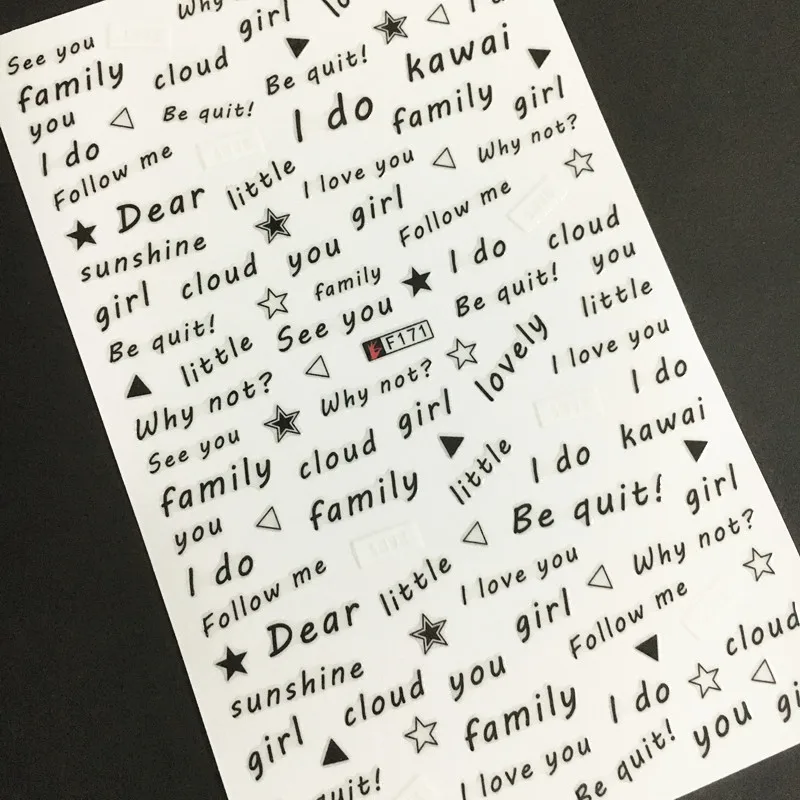 Why
See you girl
family cloud Be quit!
you Be quit! I do kawai
I do family girl
Follow me
Dear little I love you Why not?
sunshine girl Follow me
girl cloud you I do cloud
Be quit! family you
little See you Be quit! little
F171
Why not? Why not? lovely I love you
See you girl I do
family cloud little I do kawai
you family Be quit! girl
I do
Follow me I love you Why not?
Dear little girl Follow me
sunshine cloud
girl cloud you I do
family you
I love you Be quit!